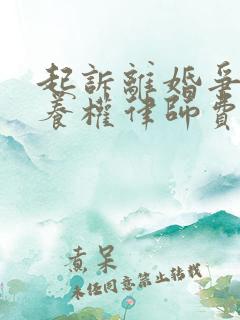 起訴離婚爭
養權律師費
真呆
未經同意禁止轉載